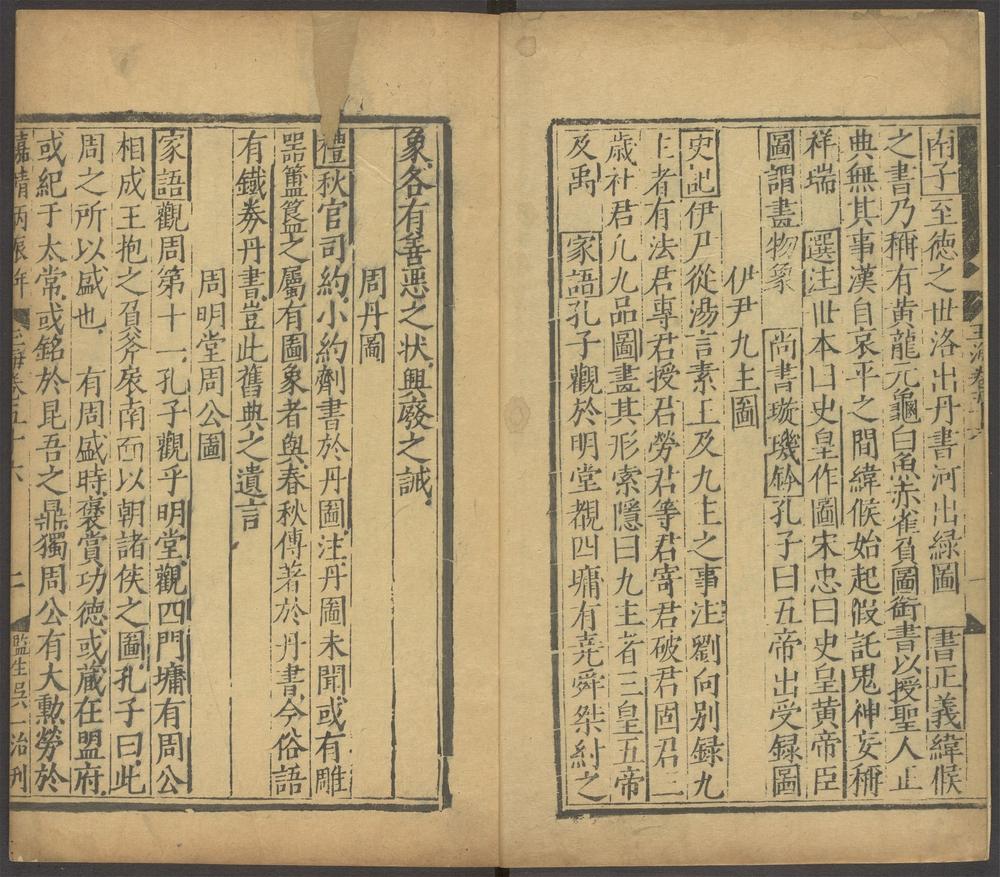 玉海卷五十六
一
南子至德之世洛出丹書河出緑圖 書正義緯候
之書乃稱有黃龍元龜白魚赤雀負圖銜書以授聖人正
典無其事漢自哀平之間緯候始起假託鬼神妄稱
祥瑞 選注世本曰史皇作圖宋忠曰史皇黃帝臣
圖謂畫物象 尚書璇璣鈐孔子曰五帝出受録圖
伊尹九主圖
史記伊尹從湯言素王及九主之事注劉向别録九
主者有法君專君授君勞君等君寄君破君固君三
歲社君凡九品圖畫其形索隱曰九主者三皇五帝
及禹 家語孔子觀於明堂覩四墉有堯舜桀紂之
象各有善惡之狀興廢之誡
周丹圖
禮秋官司約小約劑書於丹圖注丹圖未聞或有雕
器簠簋之屬有圖象者與春秋傳著於丹書今俗語
有鐵劵丹書豈此舊典之遺言
周明堂周公圖
家語觀周第十一孔子觀乎明堂觀四門墉有周公
相成王抱之負斧扆南面以朝諸侯之圖孔子曰此
周之所以盛也 有周盛時褒賞功德或藏在盟府
或紀于太常或銘於昆吾之鼎獨周公有大勳勞於
嘉靖丙辰年
玉海卷五十六
二
監生吳一治刊